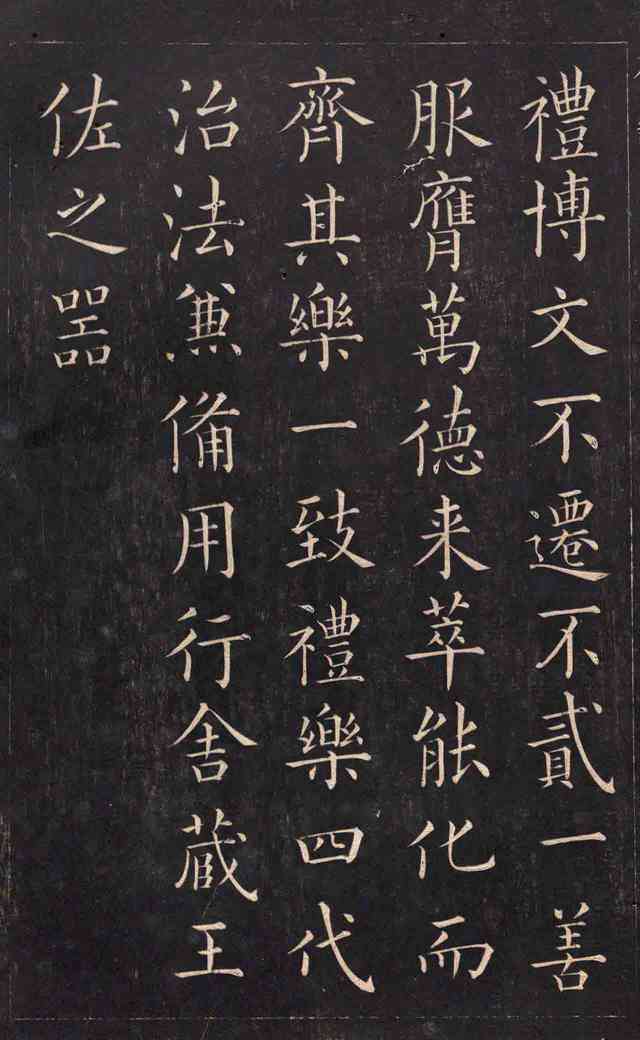 禮博文不遷不貳一善
服膺萬德来萃能化而
齊其樂一致禮樂四代
治法兼備用行舍蔵王
佐之器